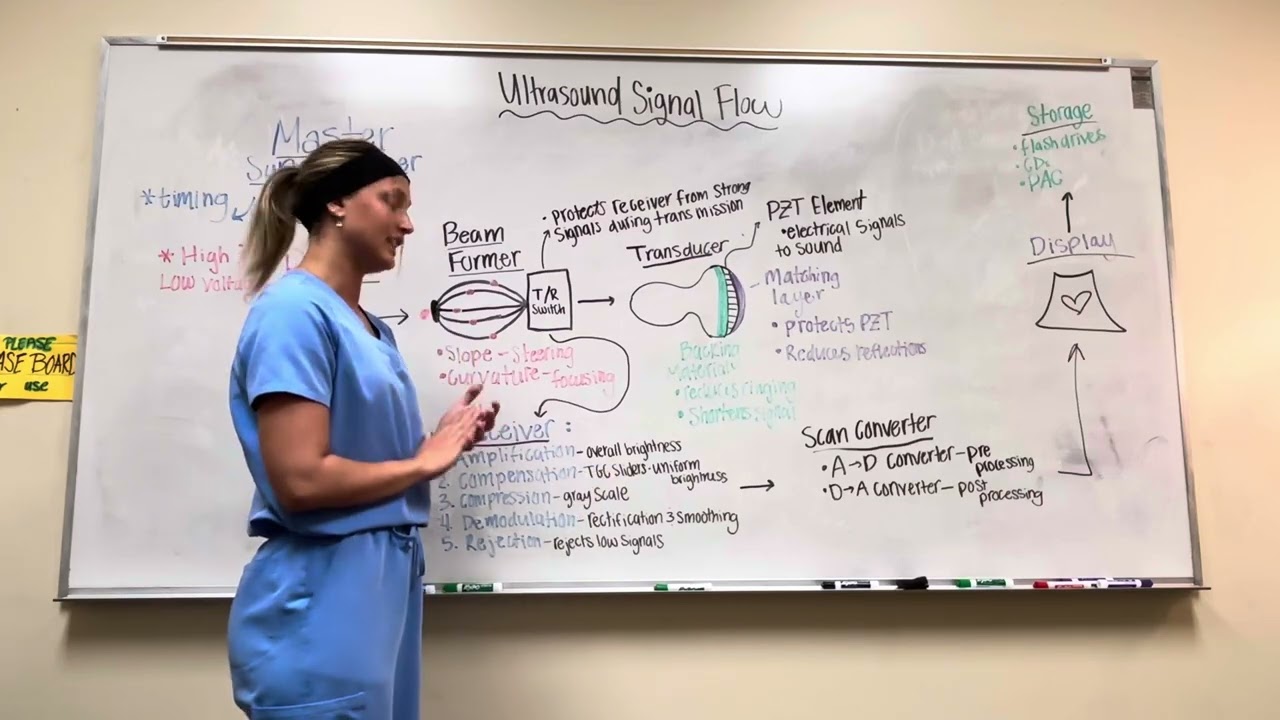 Ultrasound Signal Flow
Master
*timing
* High
Low
Beam
Former
T/R
Switch
• Slope - Steering
• Curvature - focusing
• protects receiver from strong
signals during transmission
Transducer
PZT Element
• electrical signals
to sound
Matching
layer
• protects PZT
• Reduces reflections
Backing
Material
• reduces ringing
• Shortens signal
Amplification - overall brightness
2. Compensation - TGC Sliders - uniform
brightness
3. Compression - gray scale
4. Demodulation - rectification & Smoothing
5. Rejection - rejects low signals
Scan Converter
• A→D Converter - pre
processing
• D→A Converter - post
processing
Display
Storage
• flash drives
• CDs
• PAC
PLEASE
ASE BOARD
r use